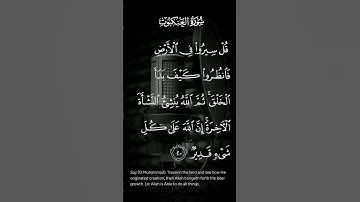 سُورَةُ العَنكَبُوتِ
قُلْ سِيرُوا۟ فِى ٱلْأَرْضِ
فَٱنظُرُوا۟ كَيْفَ بَدَأَ
ٱلْخَلْقَ ۚ ثُمَّ ٱللَّهُ يُنشِئُ ٱلنَّشْأَةَ
ٱلْـَٔاخِرَةَ ۚ إِنَّ ٱللَّهَ عَلَىٰ كُلِّ
شَىْءٍ قَدِيرٌ ٢٠
Say (O Muhammad): Travel in the land and see how He
originated creation, then Allah bringeth forth the later
growth. Lo! Allah is Able to do all things.